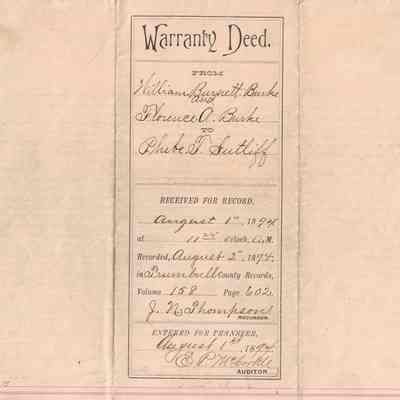 Warranty Deed.
FROM
William Burnett Burke
and
Florence A. Burke
TO
Phebe T Sutliff
RECEIVED FOR RECORD,
August 1st, 1894
at 11 25 o'clock, A.M.
Recorded, August 2", 1894.
in Trumbull County Records,
Volume 158 Page 602.
J. N. Thompson
RECORDER.
ENTERED FOR TRANSFER,
August 1st, 1894
E. P. McCorkle
AUDITOR